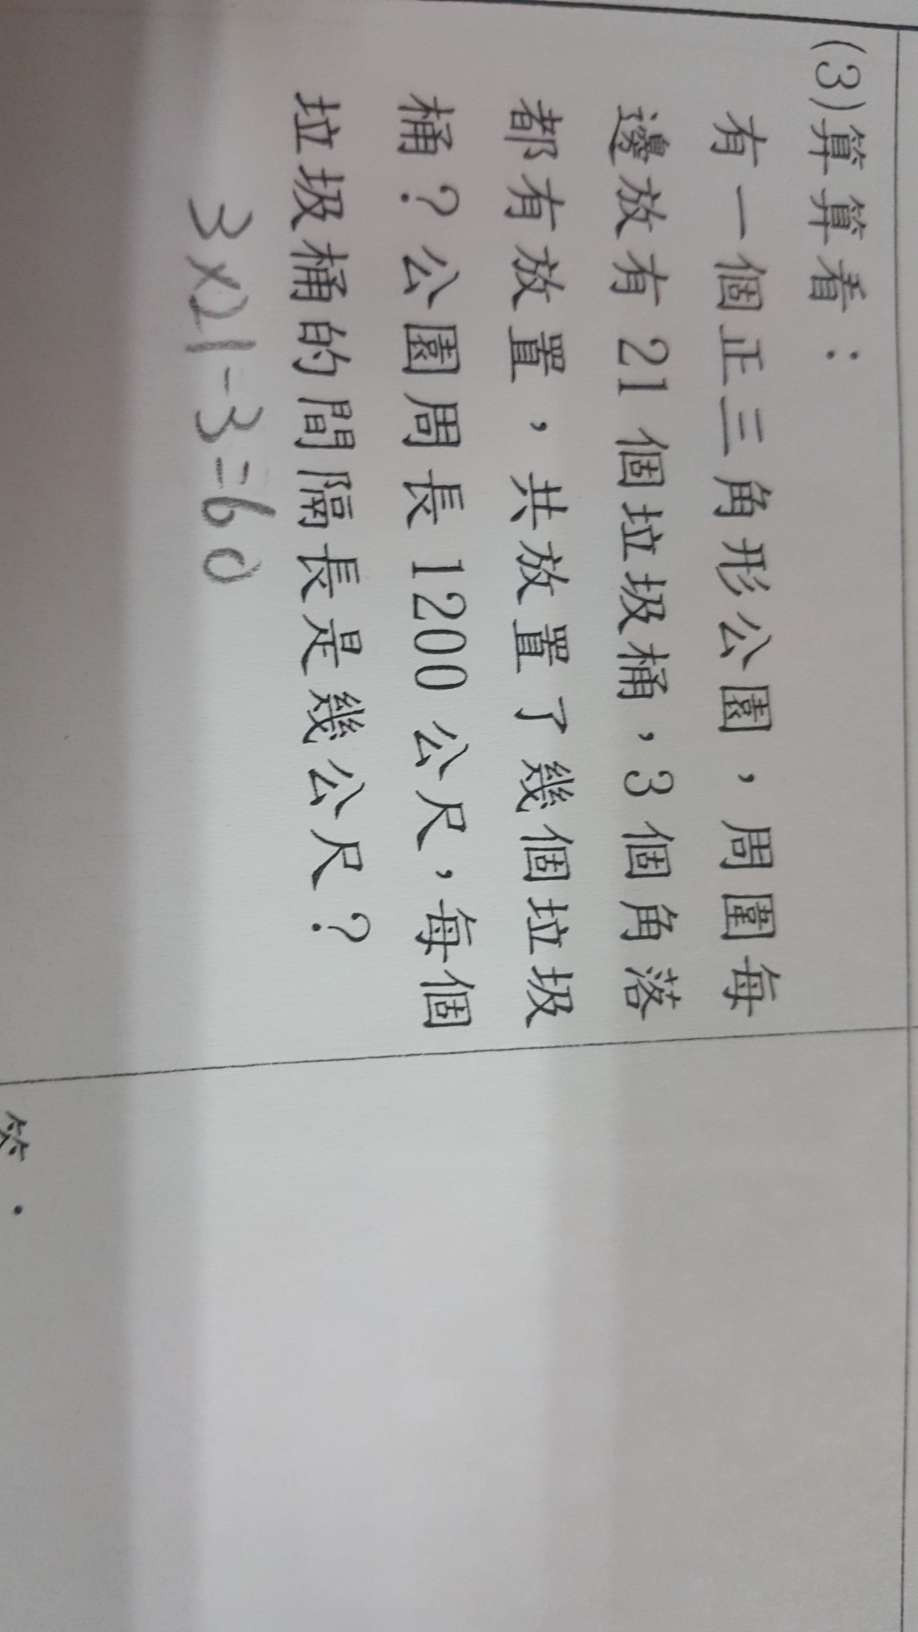 (3)算算看：
有一個正三角形公園，周圍每
邊放有 21 個垃圾桶，3 個角落
都有放置，共放置了幾個垃圾
桶？公園周長 1200 公尺，每個
垃圾桶的間隔長是幾公尺？
3×21-3=60
答：